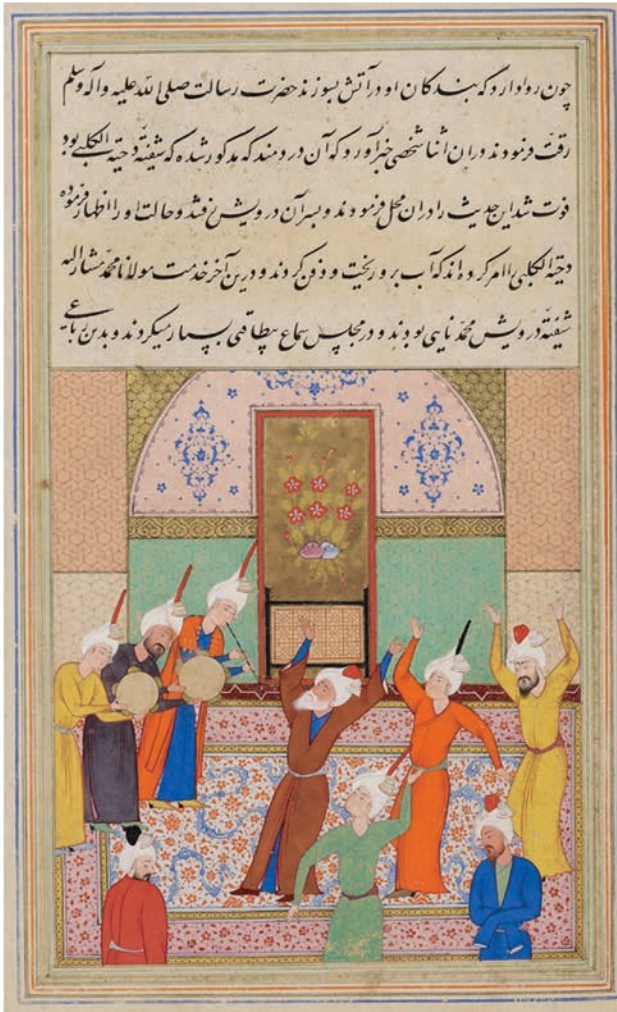 چون روا دارد که بندکان او در آتش بسوزند حضرت رسالت صلی الله علیه وآله وسلم
رقت فرمودند در ان اثنا شخصی خبر آورد که آن دردمند که مذکور شد که شیفتهٔ دحیة الکلبی بود
فوت شد این حدیث را در ان محل فرمودند و بسر آن درویش رفتند و حالت او را اظهار فرموده
دحیة الکلبی را امر کرده اند که آب برو ریخت و دفن کردند و درین آخر خدمت مولانا محمد مشار الیه
شیفتهٔ درویش محمد نایی بودند و در مجلس سماع بیطاقتی بسیار میکردند و بدین رباعی